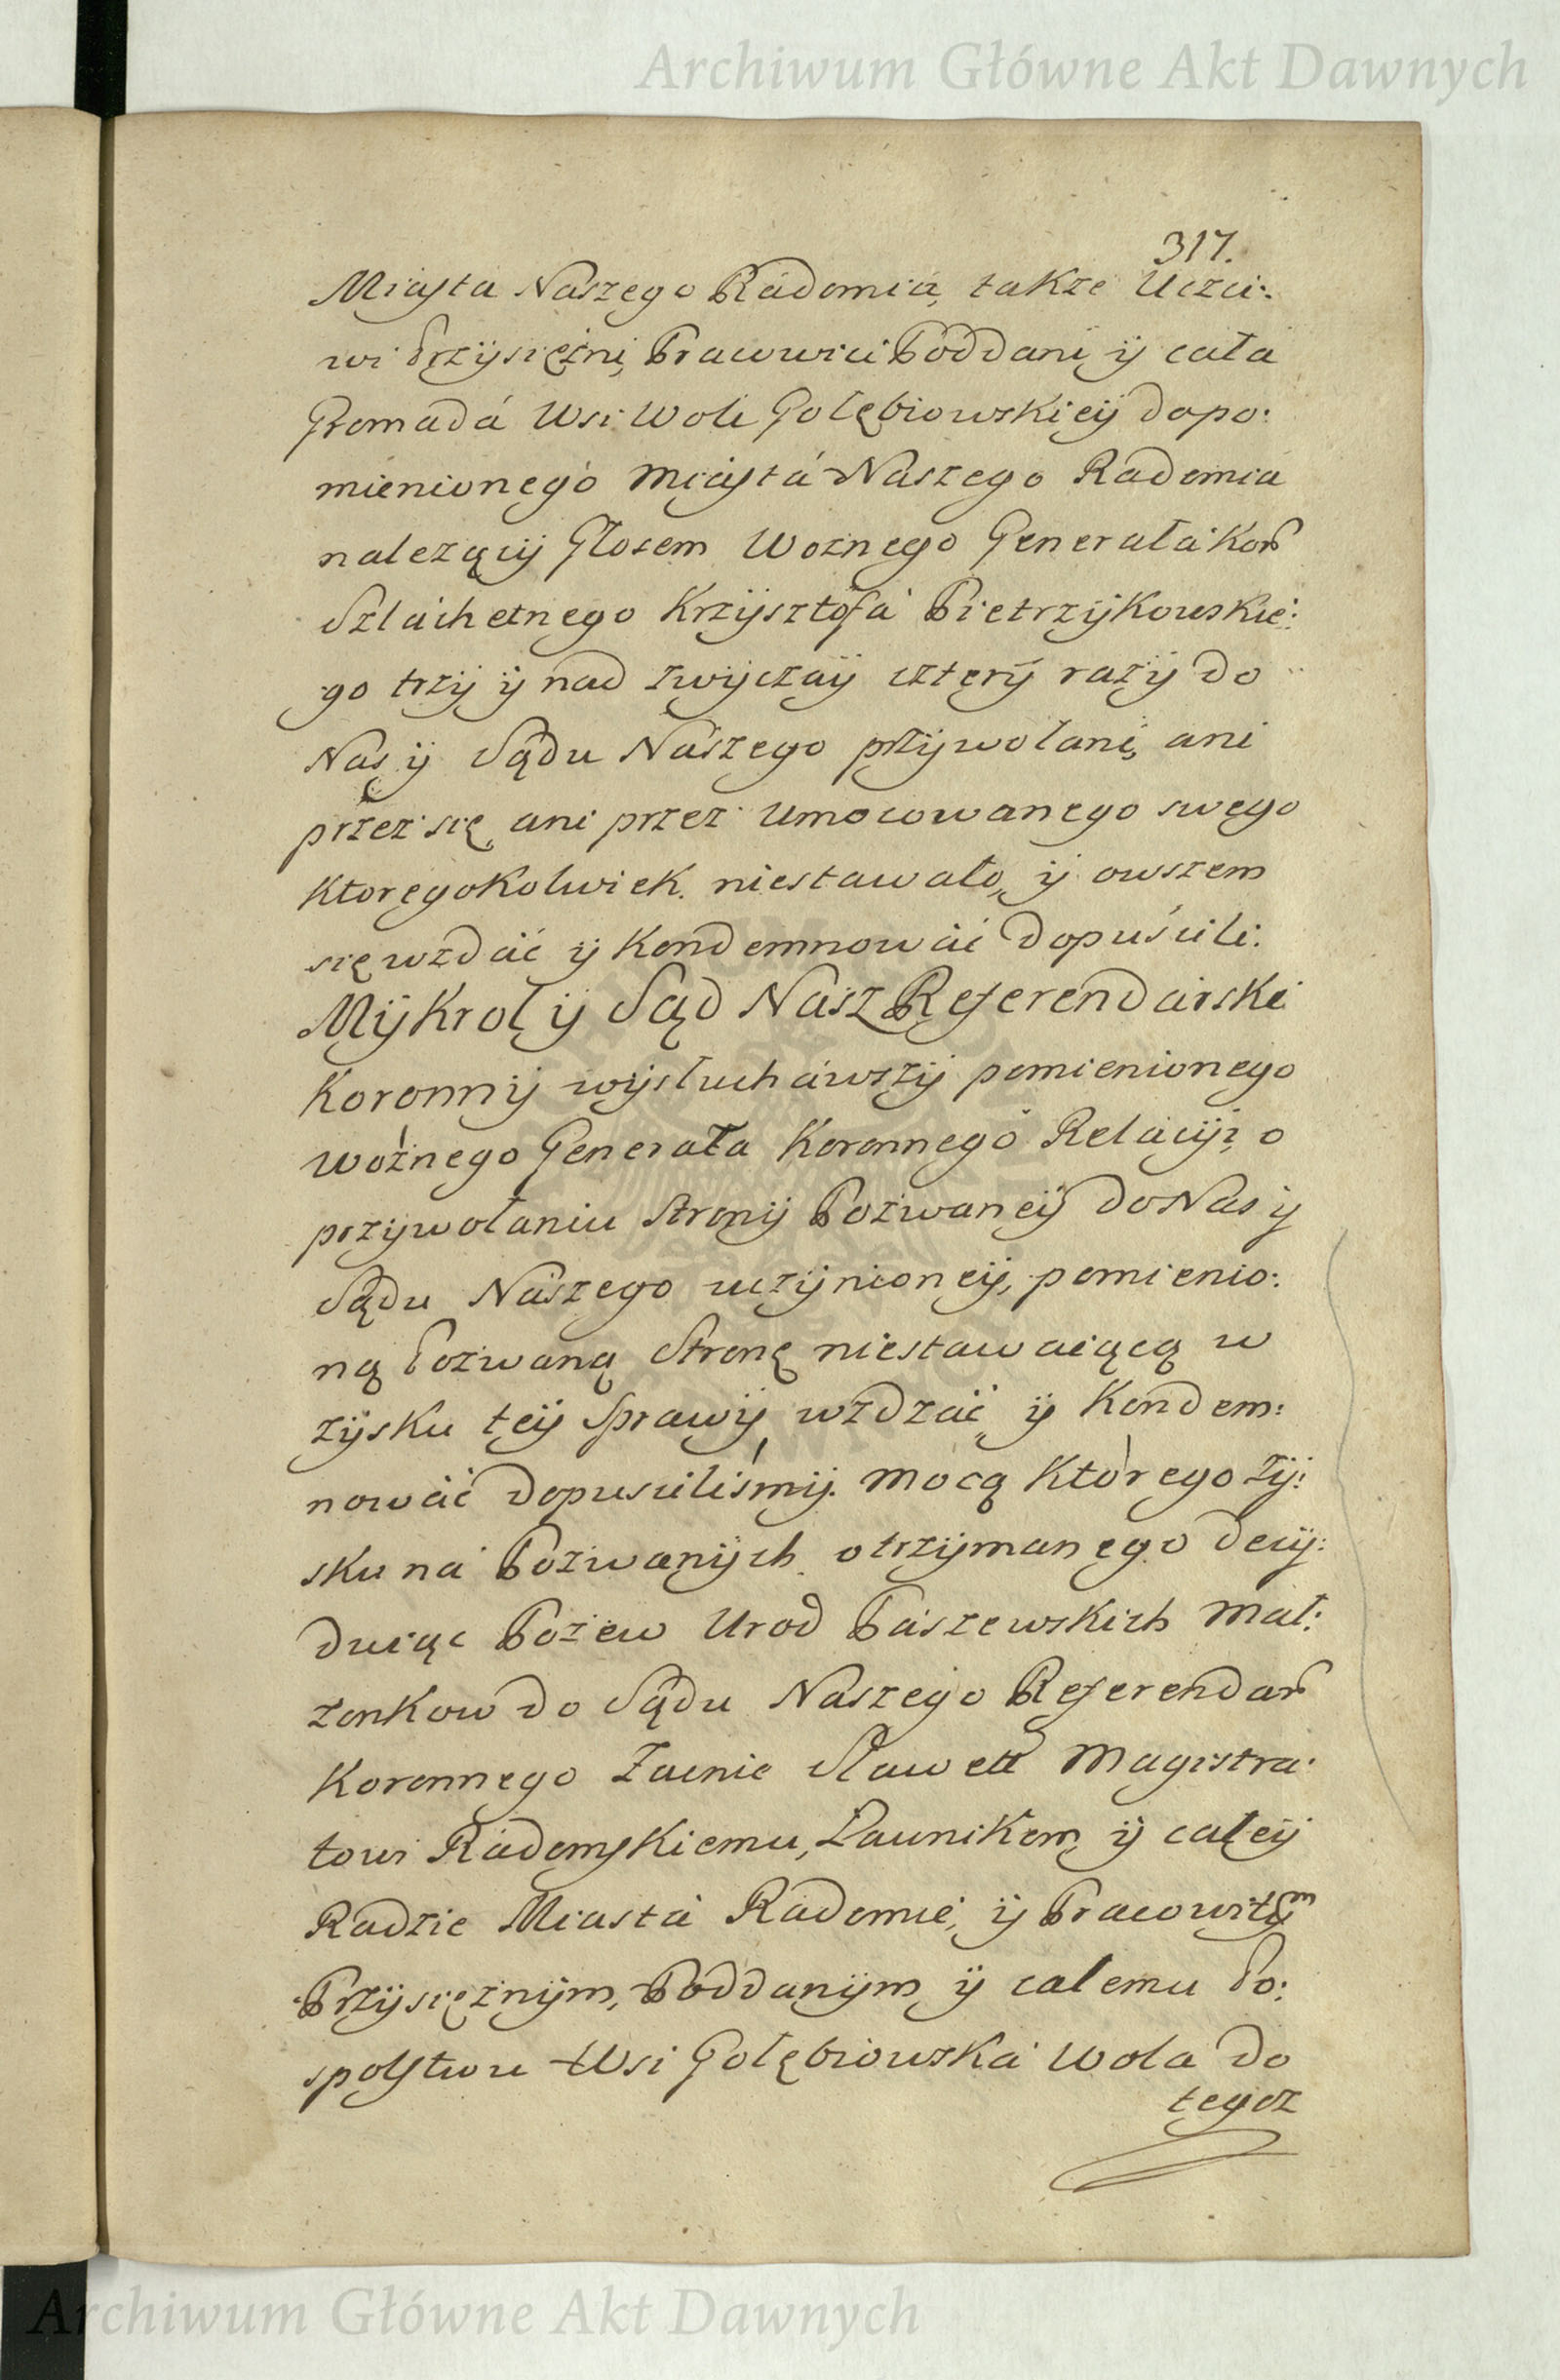 Archiwum Główne Akt Dawnych
317.
Miasta Naszego Radomia, także Uczci:
wi Przysięzni, Pracowici Poddani ÿ cała
Gromada Wsi Woli Gołębiowskieÿ dopo:
mienionego Miasta Naszego Radomia
nalezącÿ Głosem Woznego Generała Kor
Szlachetnego Krzÿsztofa Pietrzÿkowskie:
go trzÿ ÿ nad zwÿczaÿ cztery razÿ do
Nas ÿ Sądu Naszego przÿwołani, ani
przez się, ani przez Umocowanego swego
Ktoregokolwiek niestawało, ÿ owszem
się wzdać ÿ Kondemnować dopuścili.
Mÿ Krol ÿ Sąd Nasz Referendarski
Koronnÿ wÿsłuchawszÿ pomienionego
woźnego Generała Koronnego Relacÿi, o
przÿwołaniu Stronÿ Pozwaneÿ do Nas ÿ
Sądu Naszego uczÿnioneÿ, pomienio:
ną Pozwaną Stronę niestawaiącą w
zÿsku teÿ Sprawÿ wzdzać ÿ Kondem:
nować dopuściliśmÿ. Mocą Którego zÿ:
sku na Pozwanÿch otrzÿmanego decÿ:
duiąc Pozew Urod Paszewskich Mał:
zonkow do Sądu Naszego Referendar
Koronnego Zacnie Sławett Magistra:
towi Radomskiemu, Ławnikom, ÿ całeÿ
Radzie Miasta Radomia, ÿ Pracowitÿm
Przÿsięznÿm, Poddanÿm ÿ całemu Po:
spolstwu Wsi Gołębiowska Wola do
tegoz
Archiwum Główne Akt Dawnych